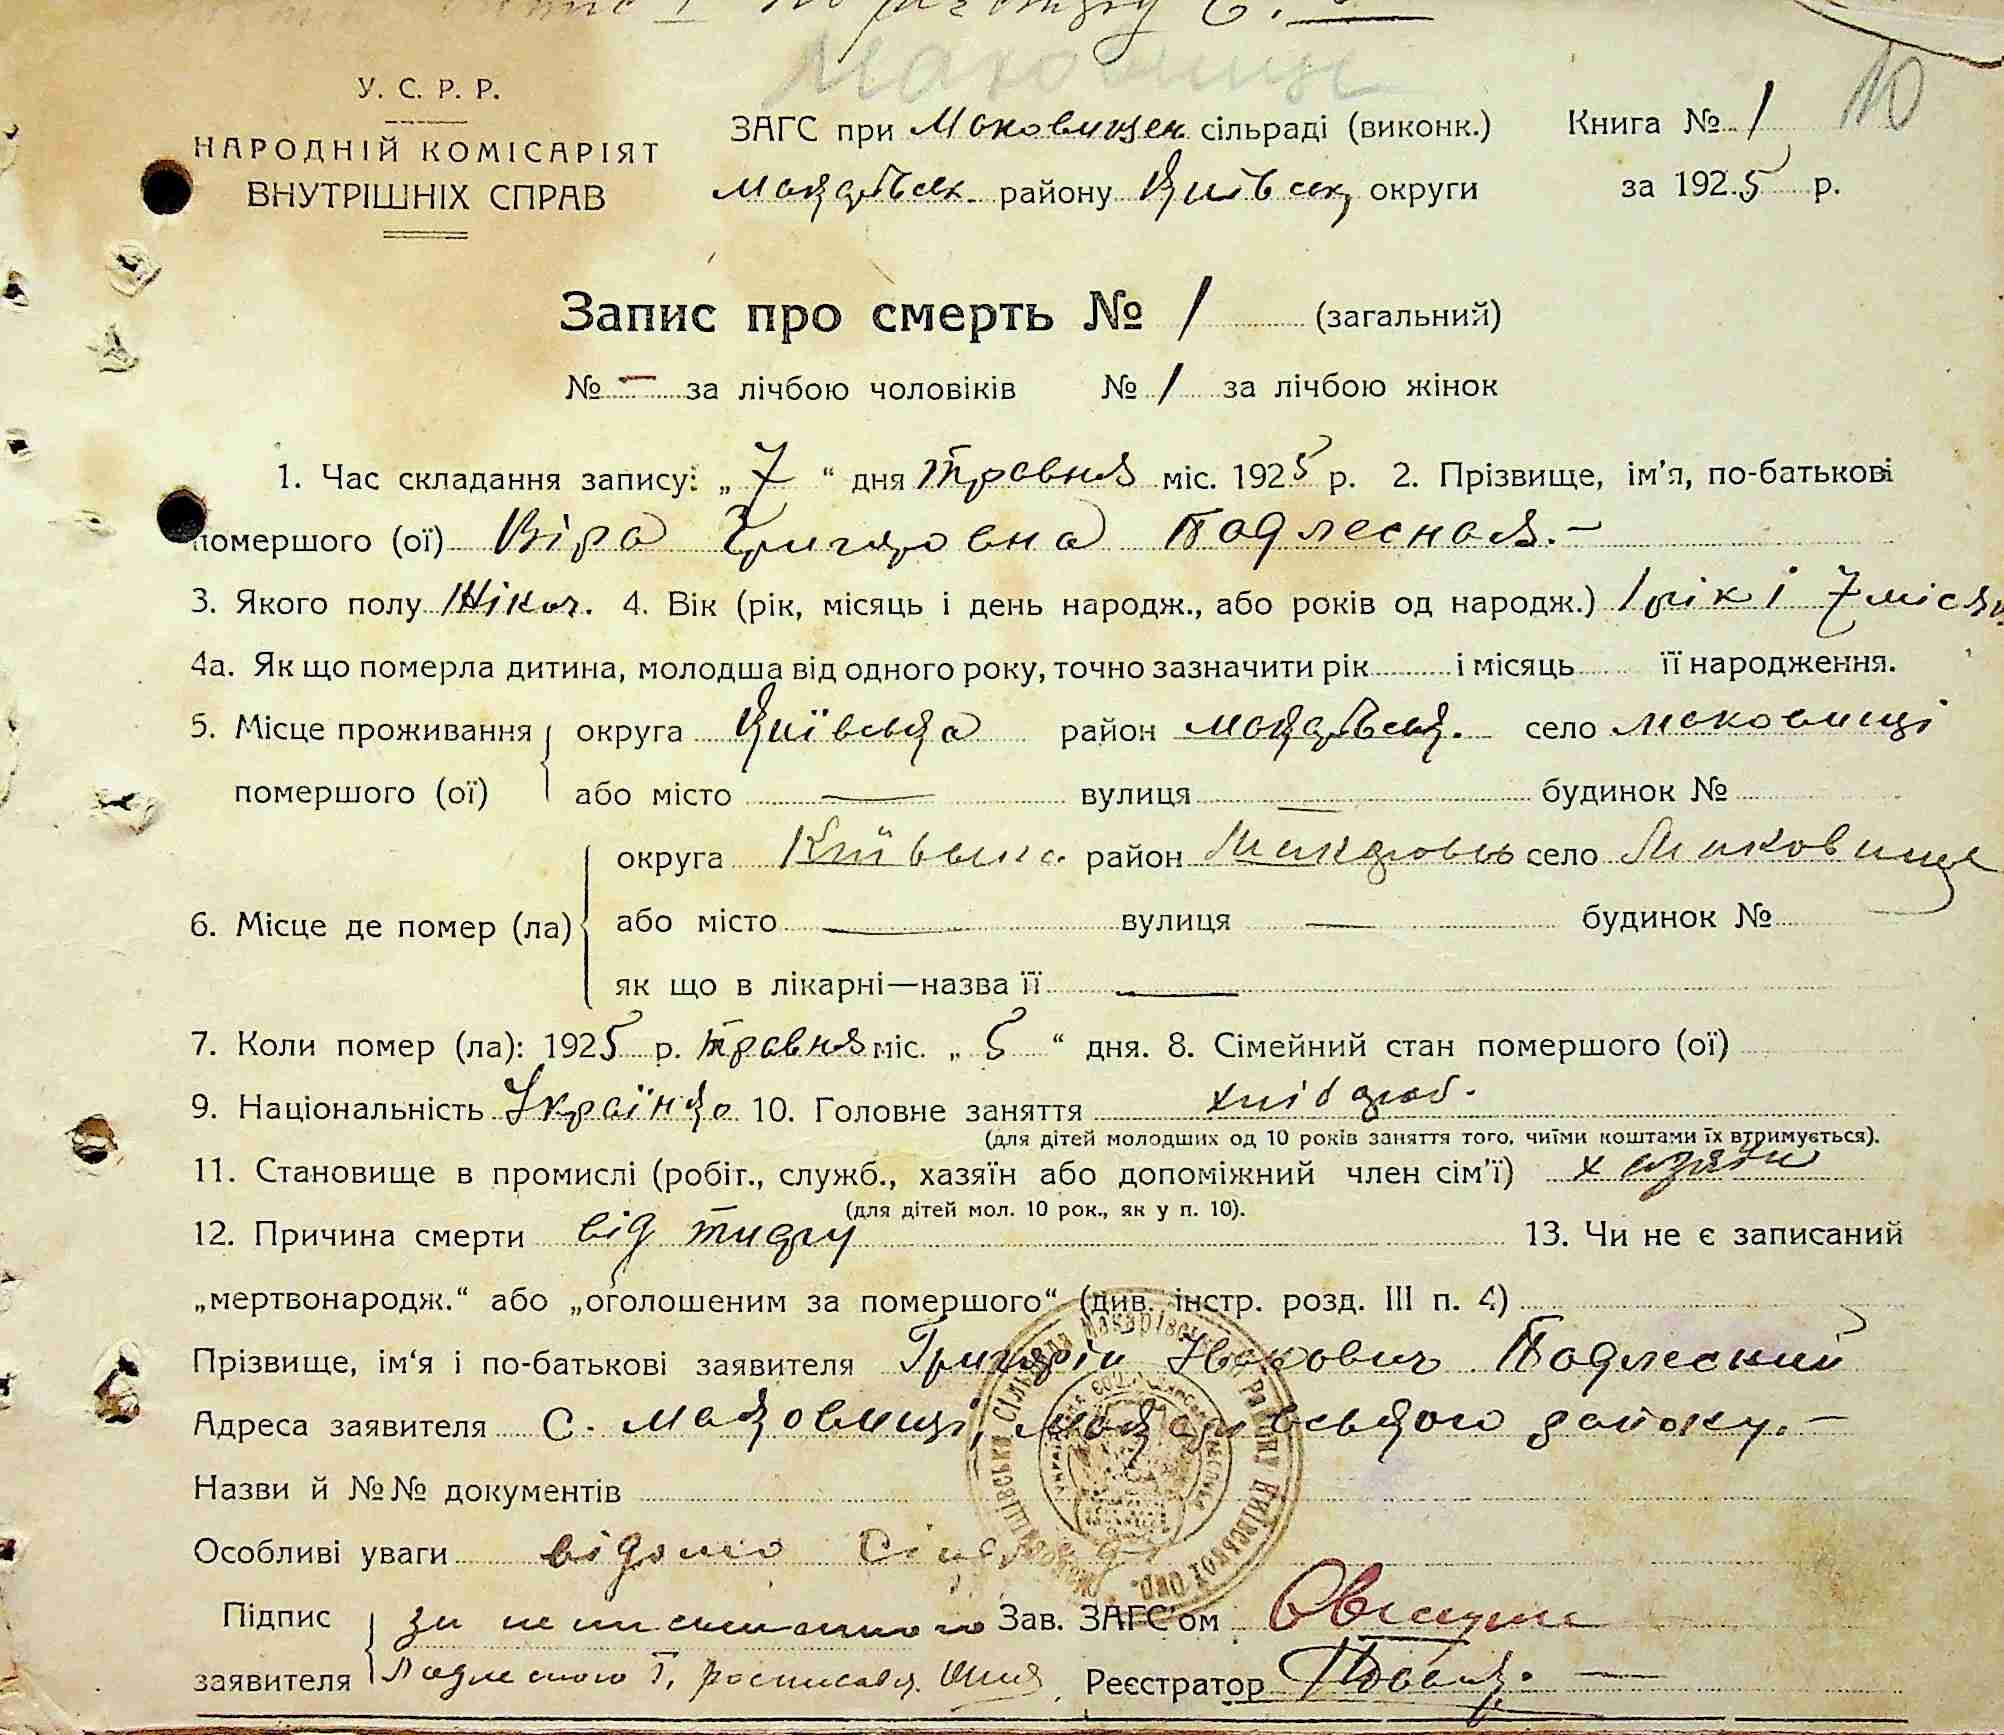 Маковище
10
У. С. Р. Р.
НАРОДНІЙ КОМІСАРІЯТ
ВНУТРІШНІХ СПРАВ
ЗАГС при Маковищен сільраді (виконк.) Книга № 1
Макарівськ. району Київськ. округи за 1925 р.
Запис про смерть № 1 (загальний)
№ — за лічбою чоловіків № 1 за лічбою жінок
1. Час складання запису: „ 7 “ дня травня міс. 1925 р. 2. Прізвище, ім'я, по-батькові
помершого (ої) Віра Григоровна Подлесная. —
3. Якого полу Жіноч. 4. Вік (рік, місяць і день народж., або років од народж.) 1 рік і 7 місяц
4а. Як що померла дитина, молодша від одного року, точно зазначити рік і місяць її народження.
5. Місце проживання округа Київська район Макарівськ. село Маковищі
помершого (ої) або місто — вулиця — будинок №
округа Київська район Макарівськ село Маковище
6. Місце де помер (ла) або місто — вулиця — будинок №
як що в лікарні—назва її —
7. Коли помер (ла): 1925 р. травня міс. „ 5 “ дня. 8. Сімейний стан помершого (ої)
9. Національність Українка 10. Головне заняття хлібороб.
(для дітей молодших од 10 років заняття того, чиїми коштами їх втримується).
11. Становище в промислі (робіт., служб., хазяїн або допоміжний член сім'ї) хазяїн
(для дітей мол. 10 рок., як у п. 10).
12. Причина смерти від тифу 13. Чи не є записаний
„мертвонародж.“ або „оголошеним за помершого“ (див. інстр. розд. III п. 4)
Прізвище, ім'я і по-батькові заявителя Григорій Іванович Подлесний
Адреса заявителя С. Маковищі, Макарівського району. —
Назви й №№ документів
Особливі уваги відомо Сільраді
Підпис за неписьменного Зав. ЗАГС'ом
заявителя Подлесного Г. росписався Реєстратор